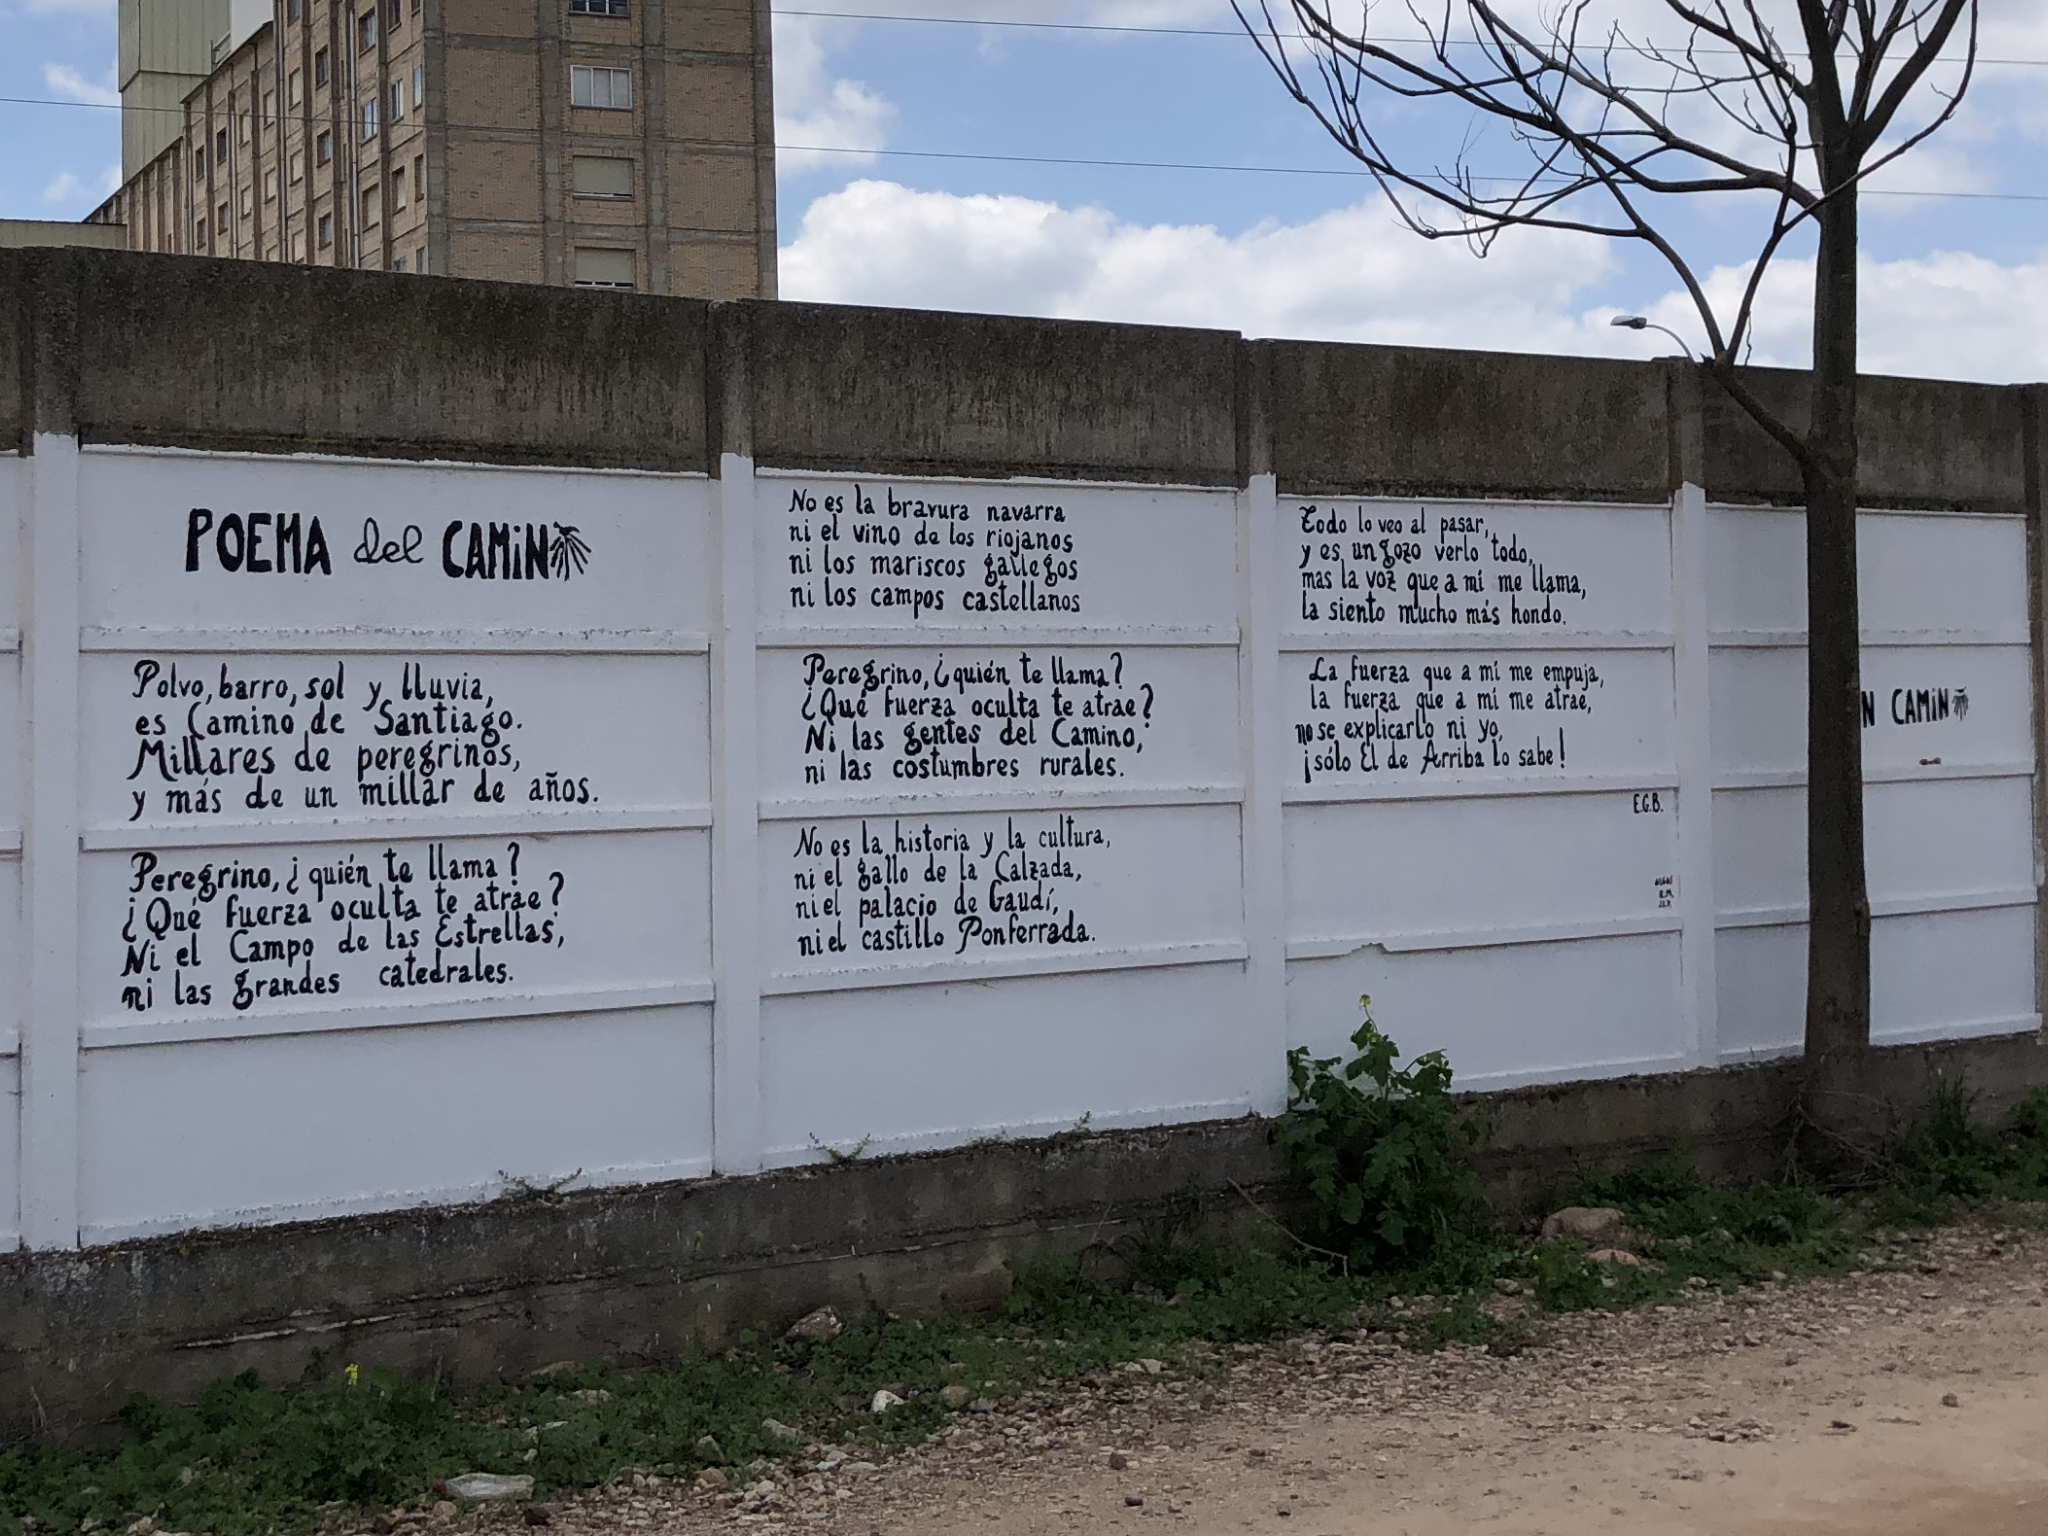 POEMA del CAMiNO
Polvo, barro, sol y lluvia,
es Camino de Santiago.
Millares de peregrinos,
y más de un millar de años.
Peregrino, ¿quién te llama?
¿Qué fuerza oculta te atrae?
Ni el Campo de las Estrellas,
ni las grandes catedrales.
No es la bravura navarra
ni el vino de los riojanos
ni los mariscos gallegos
ni los campos castellanos
Peregrino, ¿quién te llama?
¿Qué fuerza oculta te atrae?
Ni las gentes del Camino,
ni las costumbres rurales.
No es la historia y la cultura,
ni el gallo de la Calzada,
ni el palacio de Gaudí,
ni el castillo Ponferrada.
Todo lo veo al pasar,
y es un gozo verlo todo,
mas la voz que a mí me llama,
la siento mucho más hondo.
La fuerza que a mí me empuja,
la fuerza que a mí me atrae,
no se explicarlo ni yo,
¡sólo Él de Arriba lo sabe!
E.G.B.
N CAMiNO